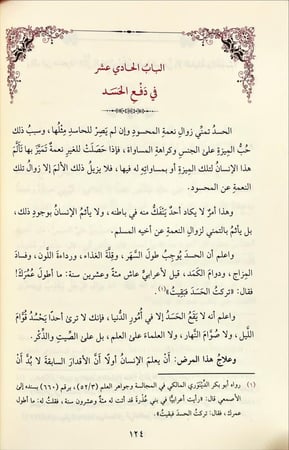 الباب الحادي عشر
في دَفْعِ الحَسَد
الحسدُ تمنّي زوالِ نعمةِ المحسودِ وإن لم يَصِرْ للحاسدِ مِثْلُها، وسببُ ذلك
حُبُّ المِيزةِ على الجنس وكراهةِ المساواة، فإذا حَصَلَتْ للغيرِ نعمةٌ تَمَيَّزَ بها تألَّمَ
هذا الإنسانُ لتلك المِيزةِ أو بمساواتِه له فيها، فلا يزيلُ ذلك الألمَ إلا زوالُ تلك
النعمةِ عن المحسود.
وهذا أمرٌ لا يكاد أحدٌ يَنْفَكُّ منه في باطنه، ولا يأثمُ الإنسانُ بوجودِ ذلك،
بل يأثمُ بالتمني لزوالِ النعمةِ عن أخيه المسلم.
واعلم أن الحسدَ يُوجِبُ طولَ السَّهَر، وقِلَّةَ الغذاء، ورداءةَ اللَّون، وفسادَ
المِزاج، ودوامَ الكَمَد، قيل لأعرابيٍّ عاش مئةً وعشرين سنة: ما أطولَ عُمُرَكَ!
فقال: «تركتُ الحَسَدَ فَبَقِيتُ»(١).
واعلم أنه لا يَقَعُ الحَسَدُ إلا في أمورِ الدُّنيا، فإنك لا ترى أحدًا يَحسُدُ قُوَّامَ
الليل، ولا صُوَّامَ النَّهار، ولا العلماءَ على العلم، بل على الصِّيتِ والذِّكْر.
وعلاجُ هذا المرض: أنْ يعلمَ الإنسانُ أولًا أنَّ الأقدارَ السابقةَ لا بُدَّ أنْ
(١) رواه أبو بكر الدِّيْنَوَري المالكي في المجالسة وجواهر العلم (٥٢/٣)، برقم (٦٦٠) بسنده إلى
الأصمعي قال: «رأيت أعرابيًّا في بني عُذرة قد أتت له مئة وعشرون سنة، فقلتُ له: ما أطول
عمرك، فقال: تركتُ الحسدَ فبقيتُ».
١٢٤